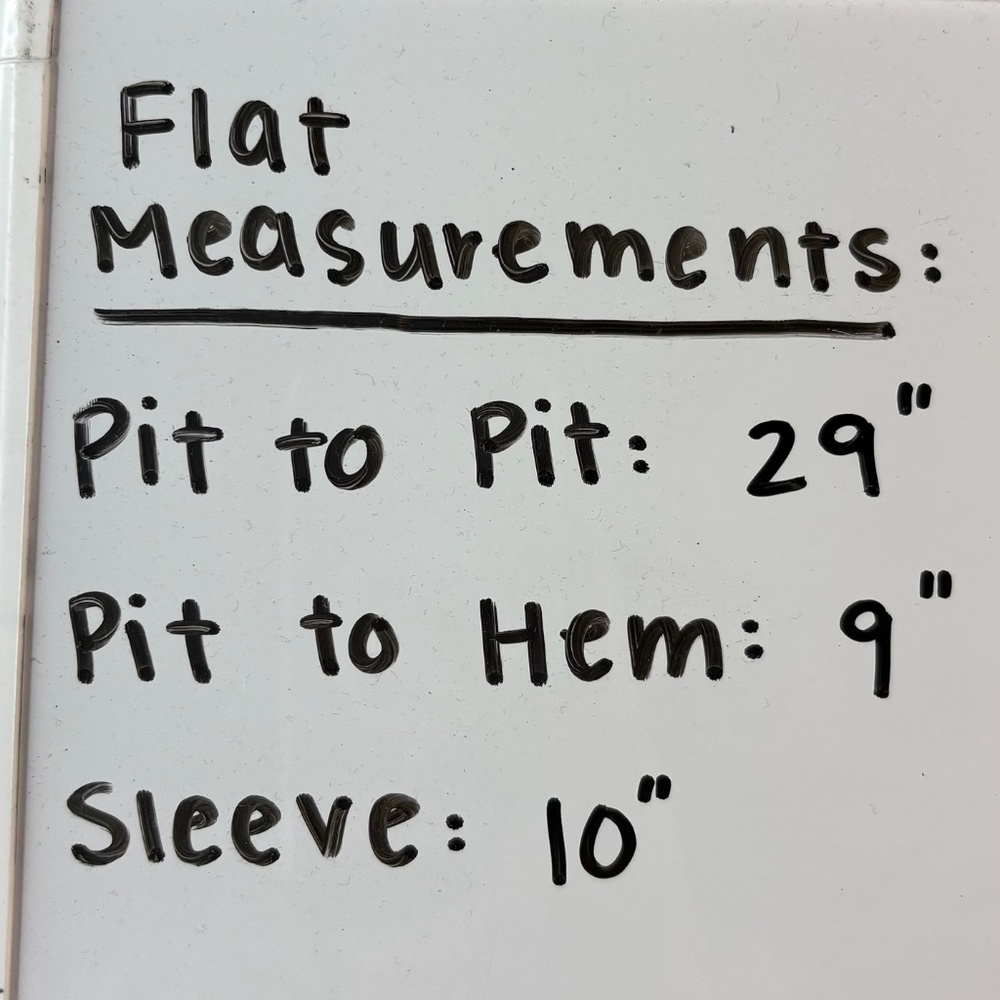 Flat
Measurements:
Pit to Pit: 29"
Pit to Hem: 9"
Sleeve: 10"